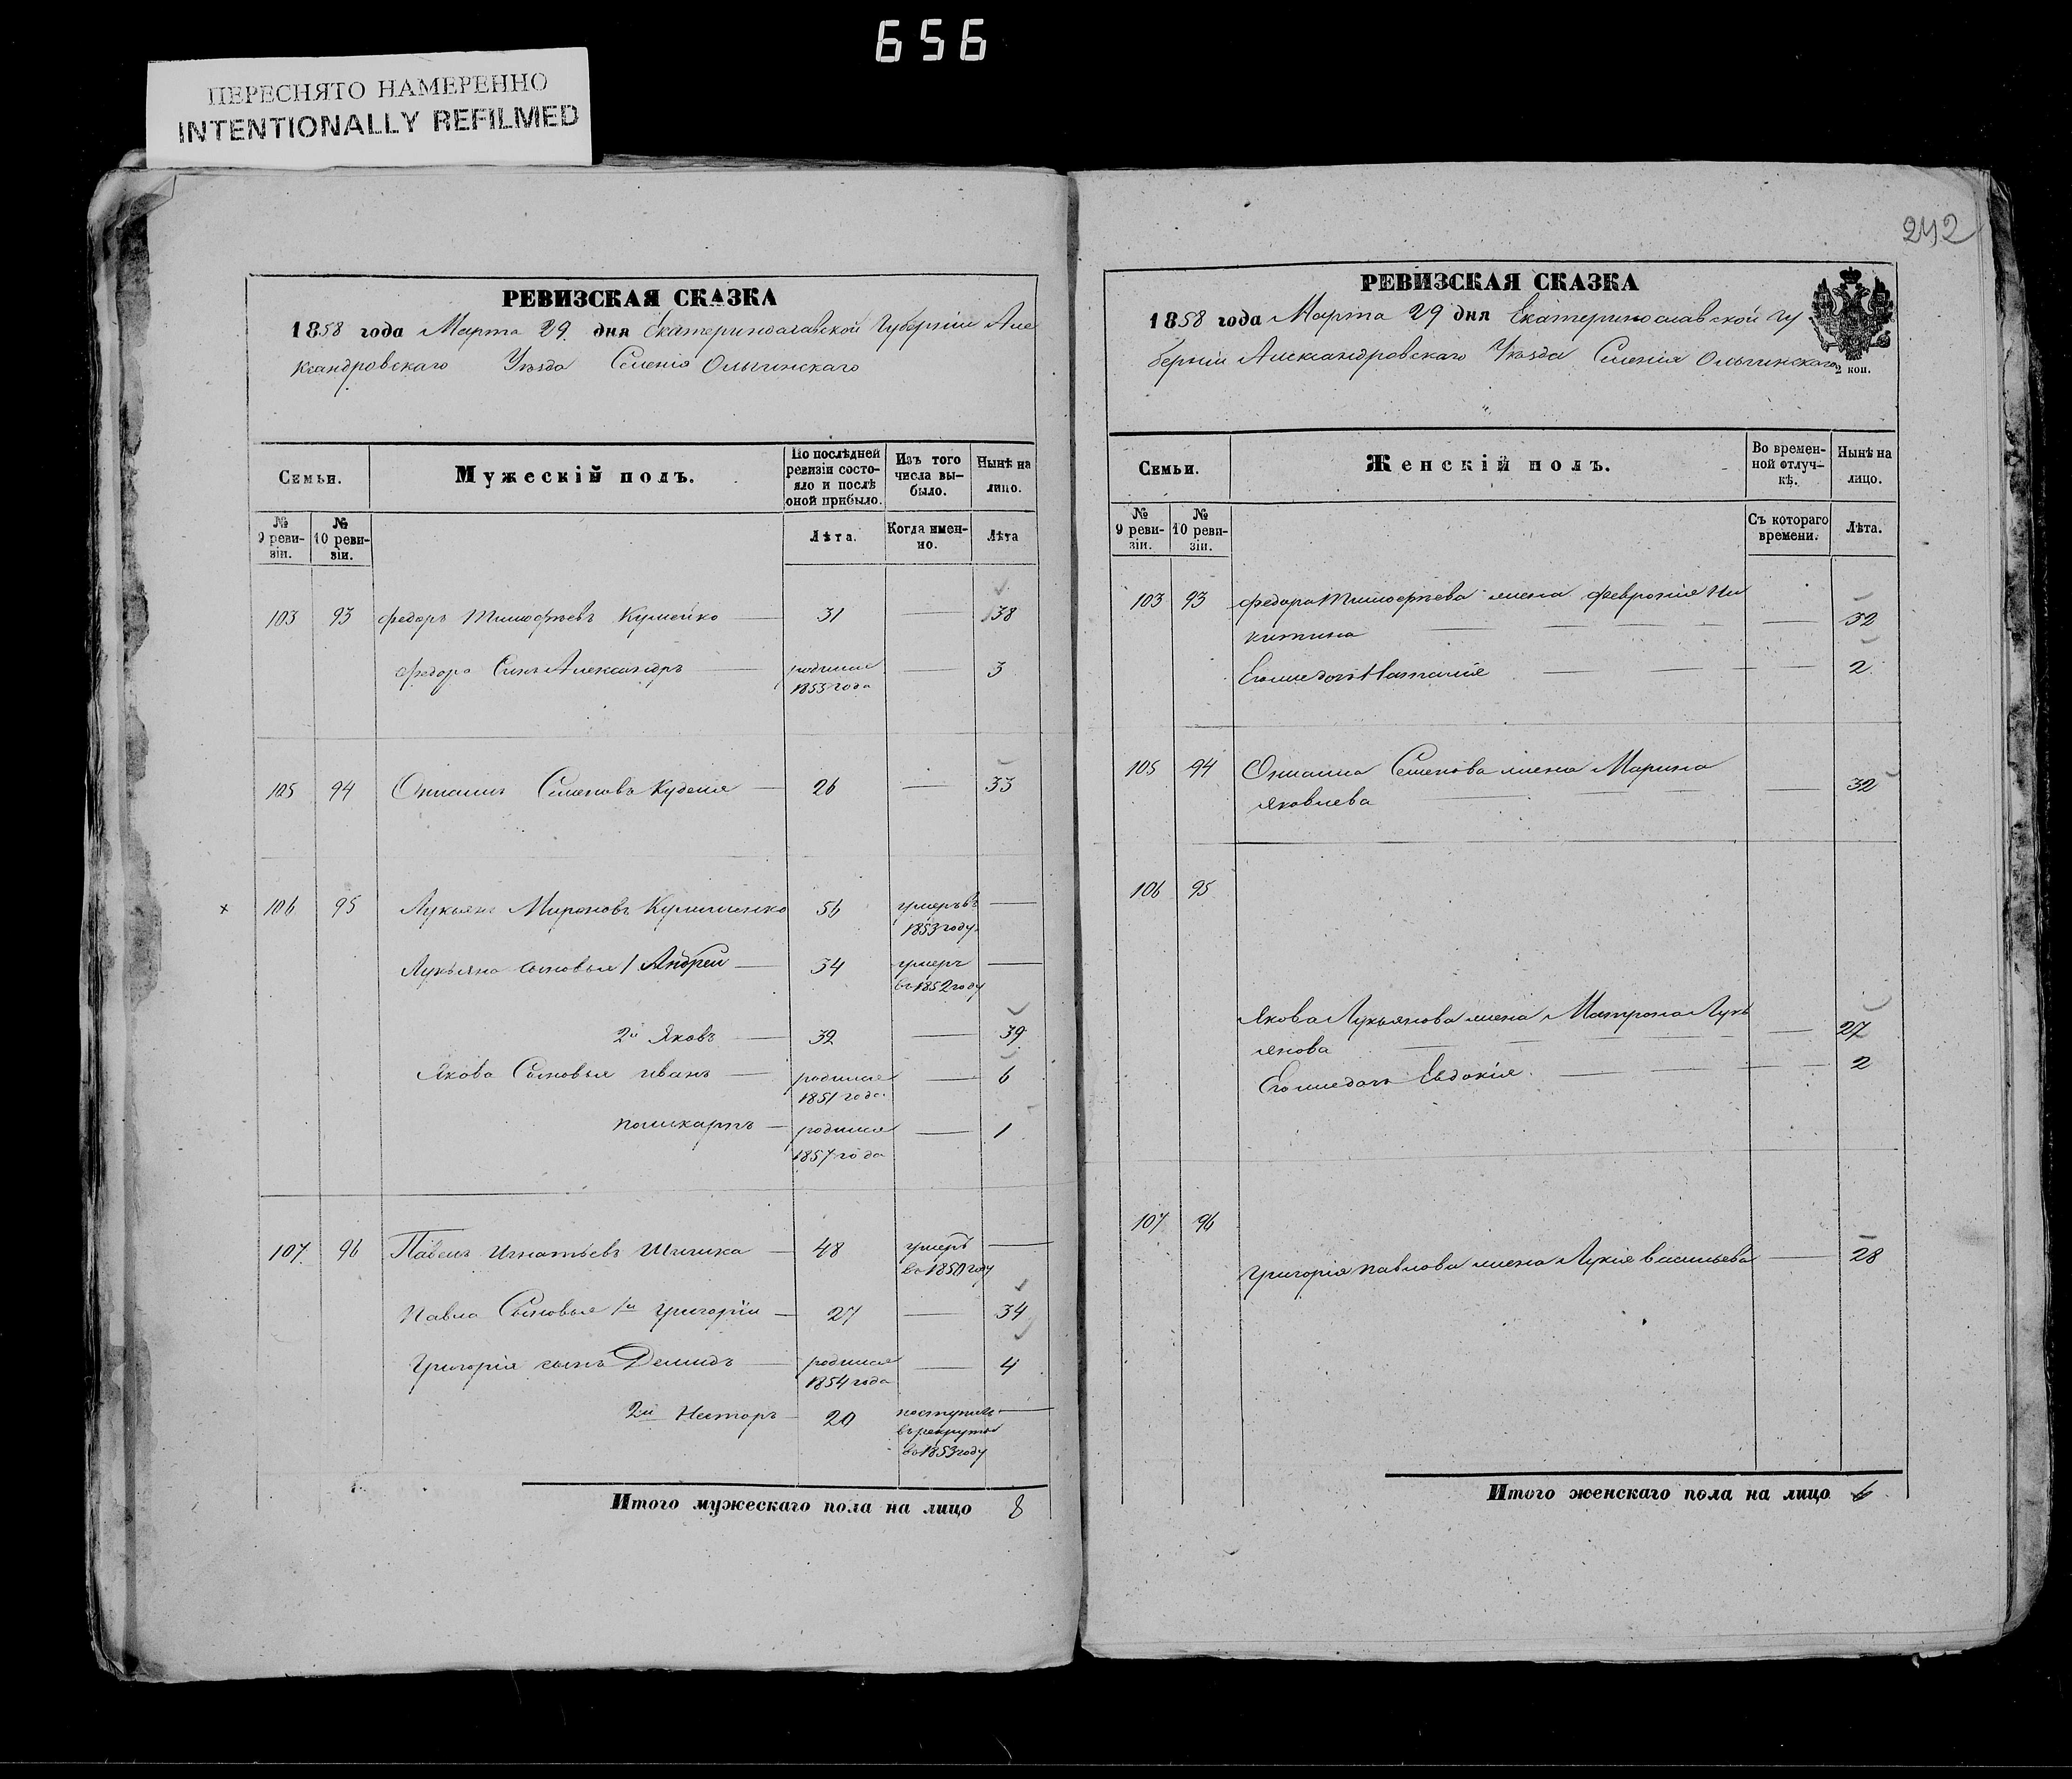 656
ПЕРЕСНЯТО НАМЕРЕННО
INTENTIONALLY REFILMED
РЕВИЗСКАЯ СКАЗКА
1858 года Марта 29 дня Екатеринославской Губерніи Але
ксандровскаго Уѣзда Селенія Ольгинскаго
Семьи.
Мужескій полъ.
По послѣдней ревизіи состояло и послѣ оной прибыло.
Изъ того числа выбыло.
Нынѣ на лицо.
№ 9 ревизіи.
№ 10 ревизіи.
Лѣта.
Когда именно.
Лѣта
103 93 Федоръ Тимофѣевъ 31 — 38
Федора Сынъ Александръ — родился — 3
1855 года
105 94 Семеновъ — 26 — 33
× 106 95 Лукьянъ Мироновъ 56 умеръ въ —
1853 году
Лукьяна сыновья 1 Андрей — 34 умеръ —
въ 1852 году
2й Яковъ — 32 — 39
Якова Сыновья Иванъ — родился — 6
1851 года
Поликарпъ — родился — 1
1857 года
107 96 Павелъ Игнатьевъ Шишка — 48 умеръ —
въ 1850 году
Павла Сыновья 1й Григорій — 27 — 34
Григорія сынъ Демидъ — родился — 4
1854 года
2й Несторъ — 20 поступилъ —
въ рекруты
въ 1853 году
Итого мужескаго пола на лицо 8
242
РЕВИЗСКАЯ СКАЗКА
1858 года Марта 29 дня Екатеринославской Гу
берніи Александровскаго Уѣзда Селенія Ольгинскаго
2 коп.
Семьи.
Женскій полъ.
Во временной отлучкѣ.
Нынѣ на лицо.
№ 9 ревизіи.
№ 10 ревизіи.
Съ котораго времени.
Лѣта.
103 93 Федора Тимофѣева жена Февронія Ни
китина — 32
Его же дочь Наталія — 2
105 94 Семенова жена Марина
Яковлева — 32
106 95
Якова Лукьянова жена Матрона Лукь
янова — 27
Его же дочь Евдокія — 2
107 96
Григорія Павлова жена Лукія Васильева — 28
Итого женскаго пола на лицо 6